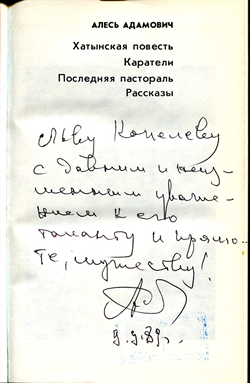 АЛЕСЬ АДАМОВИЧ
Хатынская повесть
Каратели
Последняя пастораль
Рассказы
Льву Копелеву
с давним и неиз-
менным уваже-
нием к его
таланту и прямо-
те, мужеству!
9.9.89г.